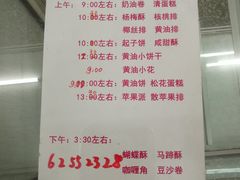 上午： 9:00左右： 奶油卷 清蛋糕
10:00左右： 杨梅酥 核桃排
椰丝排 黄油排
10:00左右： 起子饼 咸甜酥
12:30左右： 黄油小饼干
9:00 黄油小花
9:00左右： 黄油饼 松花蛋糕
13:00左右： 苹果派 散苹果排
下午： 3:30左右：
蝴蝶酥 马蹄酥
咖喱角 豆沙卷
62552328